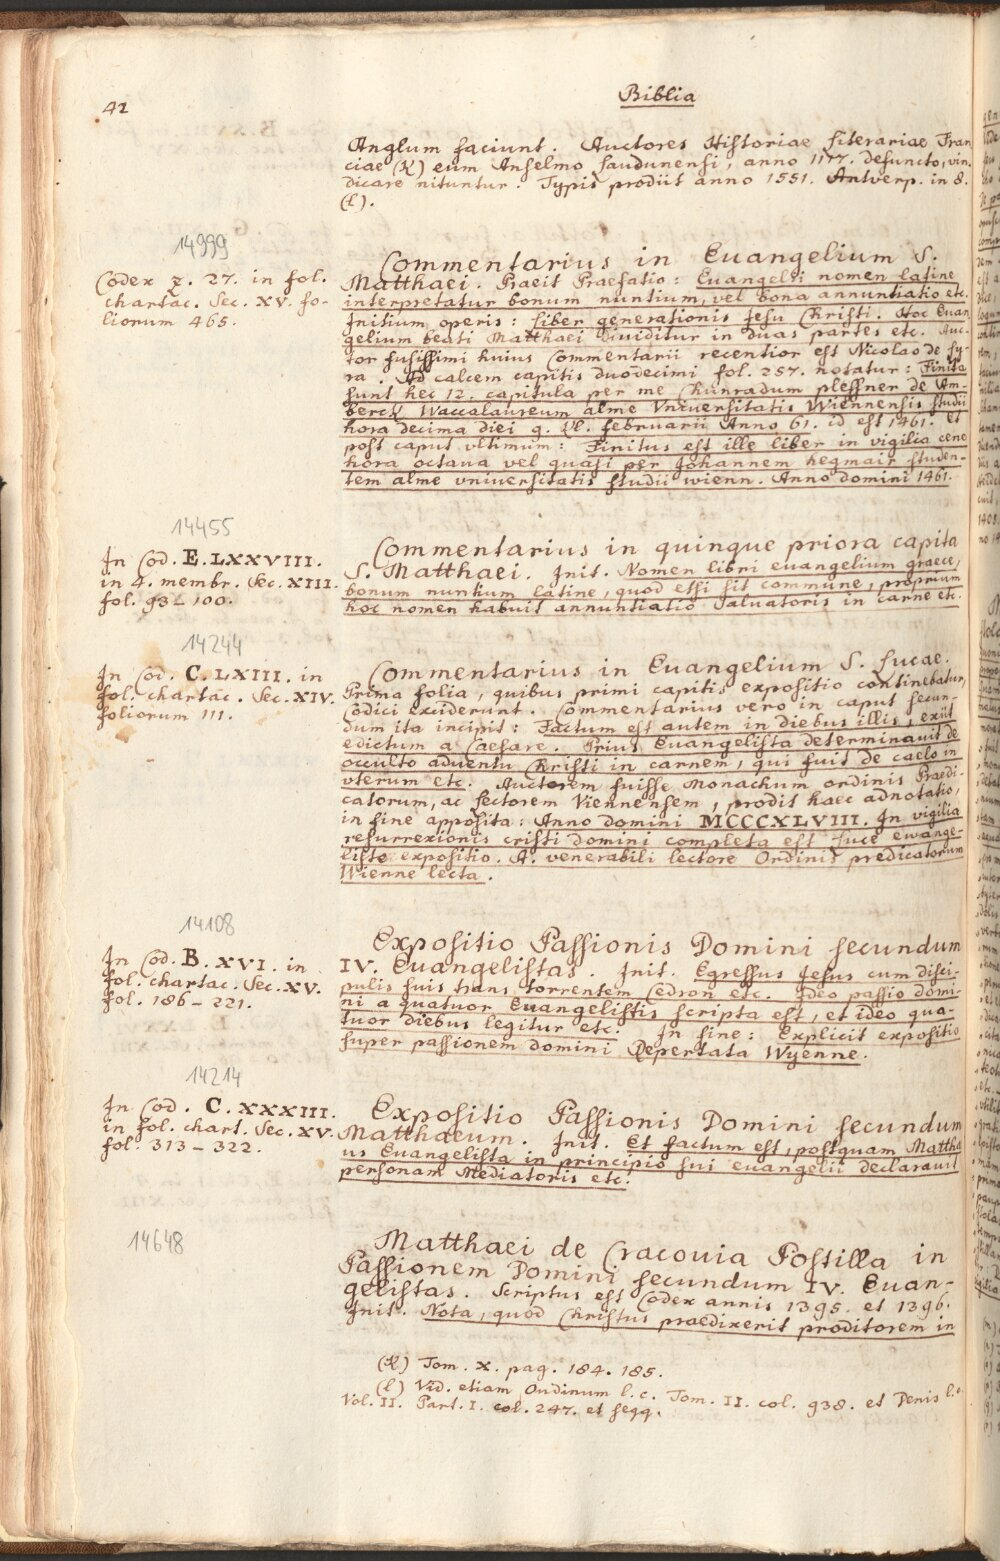 42
Biblia
Anglum faciunt. Auctores Historiae Literariae Fran
ciae (K) eum Anselmo Laudunensi, anno 1177. defuncto, vin,
dicare nituntur. Typis prodiit anno 1551. Antverp. in 8.
(l).
14999
Codex z. 27. in fol.
chartac. Sec. XV. fo-
liorum 465.
Commentarius in Euangelium S.
Matthaei. Praeit Praefatio: Euangelii nomen latine
interpretatur bonum nuntium, vel bona annuntiatio etc.
Initium operis: Liber generationis Jesu Christi. Hoc Euan
gelium beati Matthaei diuiditur in duas partes etc. Auc-
tor fusissimi huius Commentarii recentior est Nicolao de Ly-
ra. Ad calcem capitis duodecimi fol. 257. notatur: Finita
sunt hec 12. capitula per me Chunradum plessner de Am-
berck Waccalaureum alme Vniuersitatis Wiennensis studii
hora decima diei 9. Kl. februarii Anno 61. id est 1461. Et
post caput vltimum: Finitus est ille liber in vigilia cene
hora octaua vel quasi per Johannem hegmair studen-
tem alme vniuersitatis studii wienn. Anno domini 1461.
14455
In Cod. E. LXXVIII.
in 4. membr. Sec. XIII.
fol. 93-100.
Commentarius in quinque priora capita
S. Matthaei. Init. Nomen libri euangelium graece,
bonum nuntium latine, quod etsi sit commune, proprium
hoc nomen habuit annuntiatio Saluatoris in carne etc.
14244
In Cod. C. LXIII. in
fol. chartac. Sec. XIV.
foliorum 111.
Commentarius in Euangelium S. Lucae.
Prima folia, quibus primi capitis expositio continebatur,
Codici exciderunt. Commentarius vero in caput secun-
dum ita incipit: Factum est autem in diebus illis, exiit
edictum a Caesare. Prius Euangelista determinauit de
occulto aduentu Christi in carnem, qui fuit de caelo in
vterum etc. Auctorem fuisse Monachum ordinis Praedi-
catorum, ac Lectorem Viennensem, prodit haec adnotatio,
in fine apposita: Anno domini MCCCXLVIII. In vigilia
resurrexionis cristi domini completa est Luce ewange-
liste expositio. A. venerabili lectore Ordinis predicatorum
Wienne lecta.
14108
In Cod. B. XVI. in
fol. chartac. Sec. XV.
fol. 186-221.
Expositio Passionis Domini secundum
IV. Euangelistas. Init. Egressus Jesus cum disci-
pulis suis trans torrentem Cedron etc. Ideo passio domi-
ni a quatuor Euangelistis scripta est, et ideo qua-
tuor diebus legitur etc. In fine: Explicit expositio
super passionem domini Repertata Wyenne.
14214
In Cod. C. XXXIII.
in fol. chart. Sec. XV.
fol. 313-322.
Expositio Passionis Domini secundum
Matthaeum. Init. Et factum est, postquam Matthae
us Euangelista in principio sui euangelii declarauit
personam Mediatoris etc.
14648
Matthaei de Cracouia Postilla in
Passionem Domini secundum IV. Euan-
gelistas. Scriptus est Codex annis 1395. et 1396.
Init. Nota, quod Christus praedixerit proditorem in
(K) Tom. X. pag. 184. 185.
(l) Vid. etiam Oudinum l. c. Tom. II. col. 938. et Denis l. c.
Vol. II. Part. I. col. 247. et seqq.